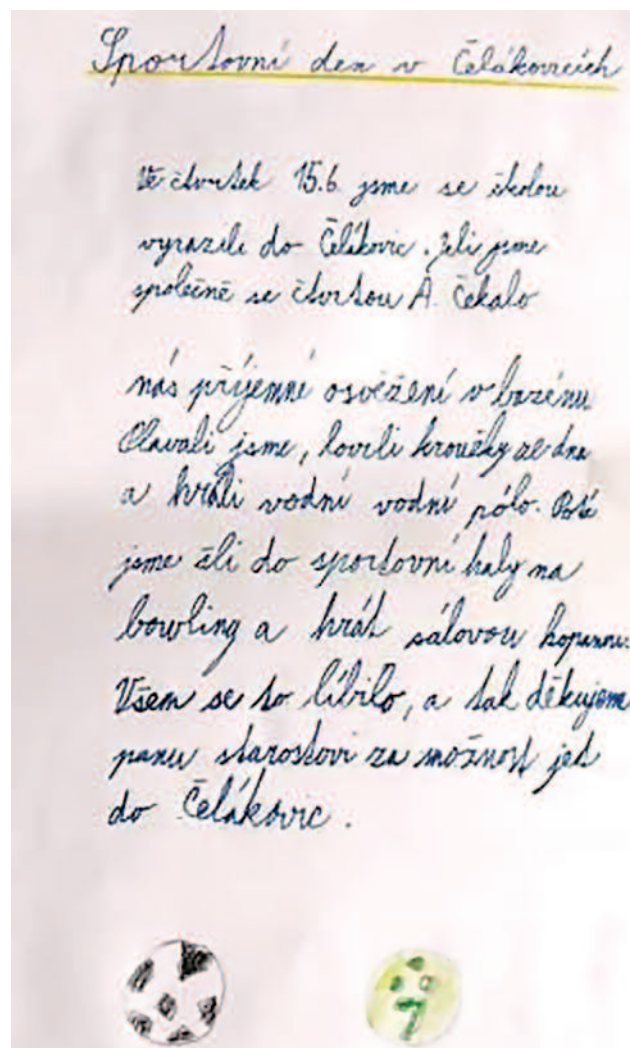 Sportovní den v Čelákovicích
Ve čtvrtek 15.6. jsme se školou
vyrazili do Čelákovic. Jeli jsme
společně se čtvrtou A. Čekalo
nás příjemné osvěžení v bazénu
Plavali jsme, lovili kroužky ze dna
a hráli vodní vodní pólo. Poté
jsme šli do sportovní haly na
bowling a hrát sálovou kopanou.
Všem se to líbilo, a tak děkujem
panu starostovi za možnost jet
do Čelákovic.
7